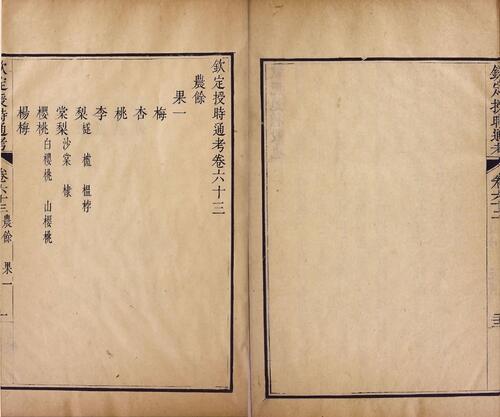 欽定授時通考 卷六十二
欽定授時通考卷六十三
農餘
果一
梅
杏
桃
李
梨 樝 榲桲
棠梨 沙棠 棣
櫻桃 白櫻桃 山櫻桃
楊梅
欽定授時通考 卷六十三 農餘 果一 一